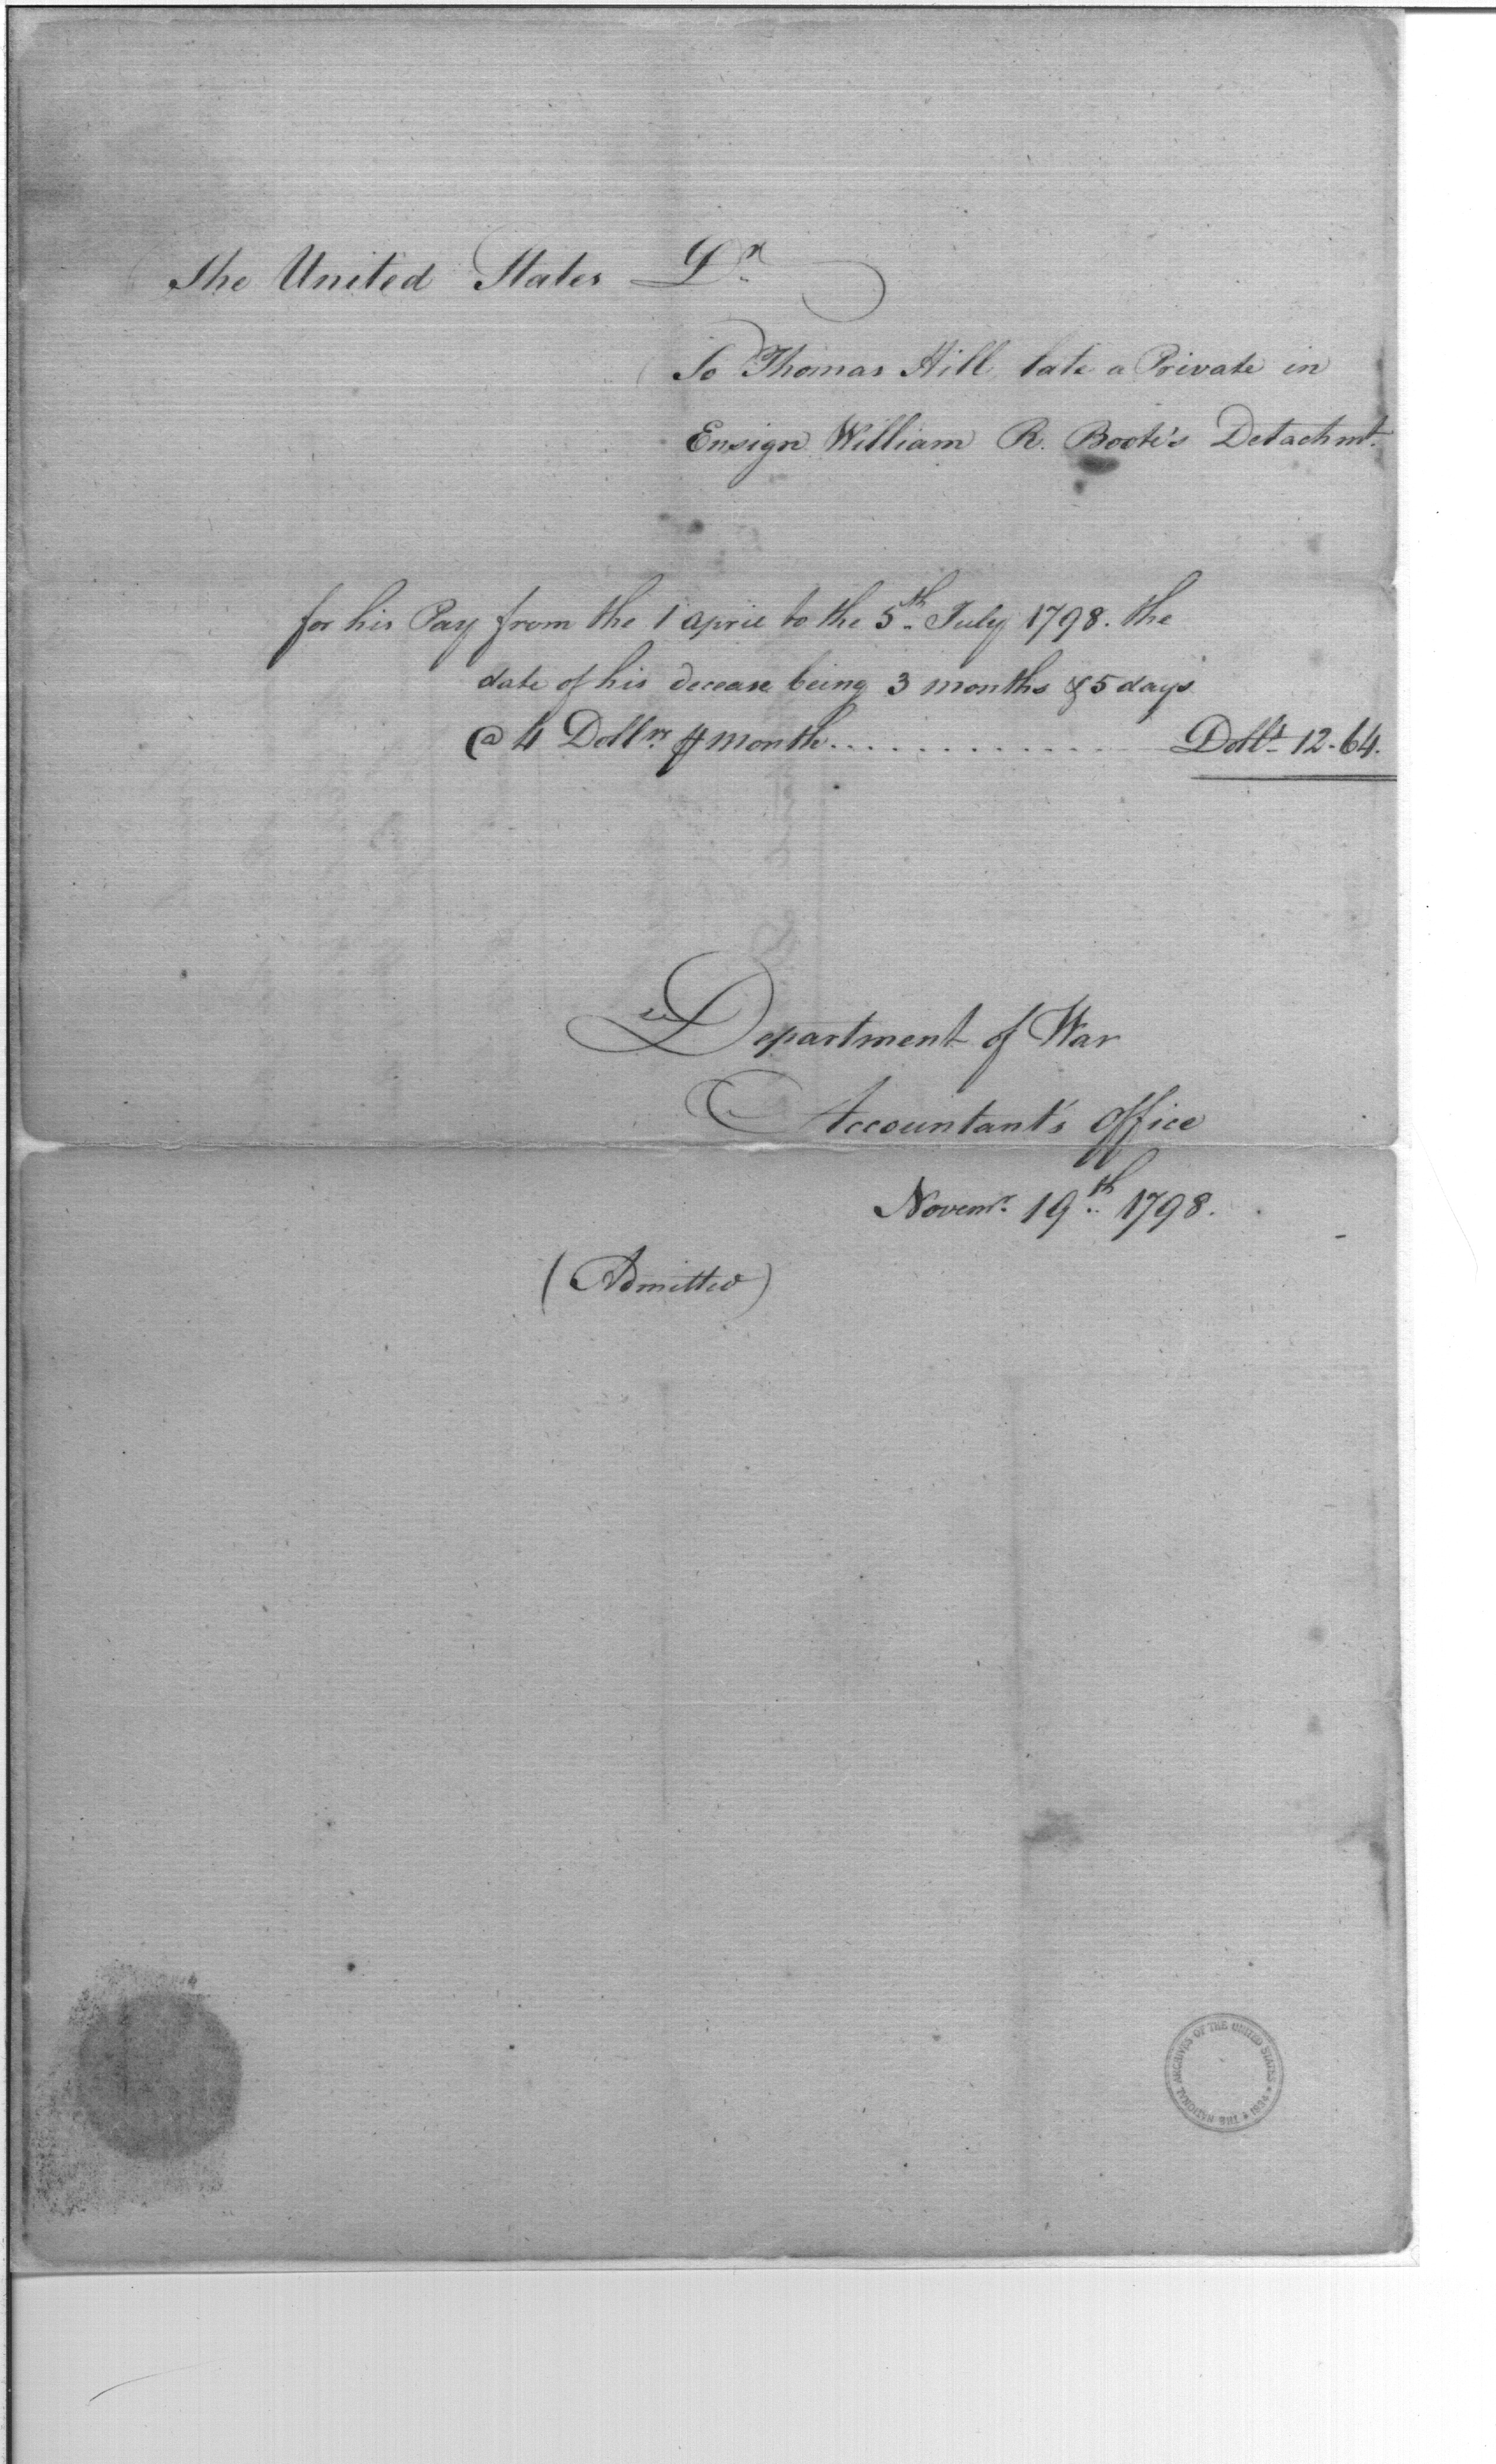 The United States Dr.
To Thomas Hill late a Private in
Ensign William R. Boote's Detachmt.
for his Pay from the 1 april to the 5th July 1798. the
date of his decease being 3 months & 5 days
@ 4 Dollrs ⅌ month.............. Dolls. 12.64.
Department of War
Accountant's Office
Novemr. 19th. 1798.
(Admitted)
THE NATIONAL ARCHIVES OF THE UNITED STATES ★ 1934 ★